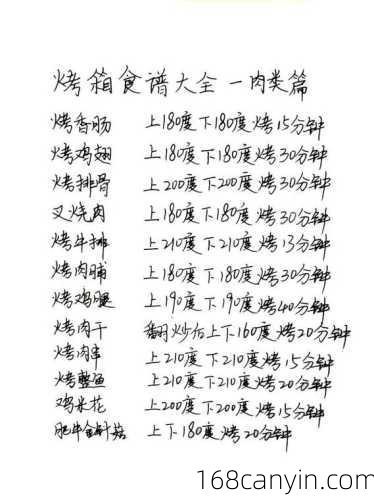 烤箱食谱大全 一肉类篇
烤香肠 上180度下180度烤15分钟
烤鸡翅 上180度下180度烤30分钟
烤排骨 上200度下200度烤30分钟
叉烧肉 上180度下180度烤30分钟
烤牛排 上210度下210度烤13分钟
烤肉脯 上180度下180度烤30分钟
烤鸡腿 上190度下190度烤40分钟
烤肉干 翻炒后上下160度烤20分钟
烤肉串 上210度下210度烤15分钟
烤鱼 上210度下210度烤20分钟
鸡米花 上200度下200度烤15分钟
肥牛金针菇 上下180度烤20分钟
168canyin.com